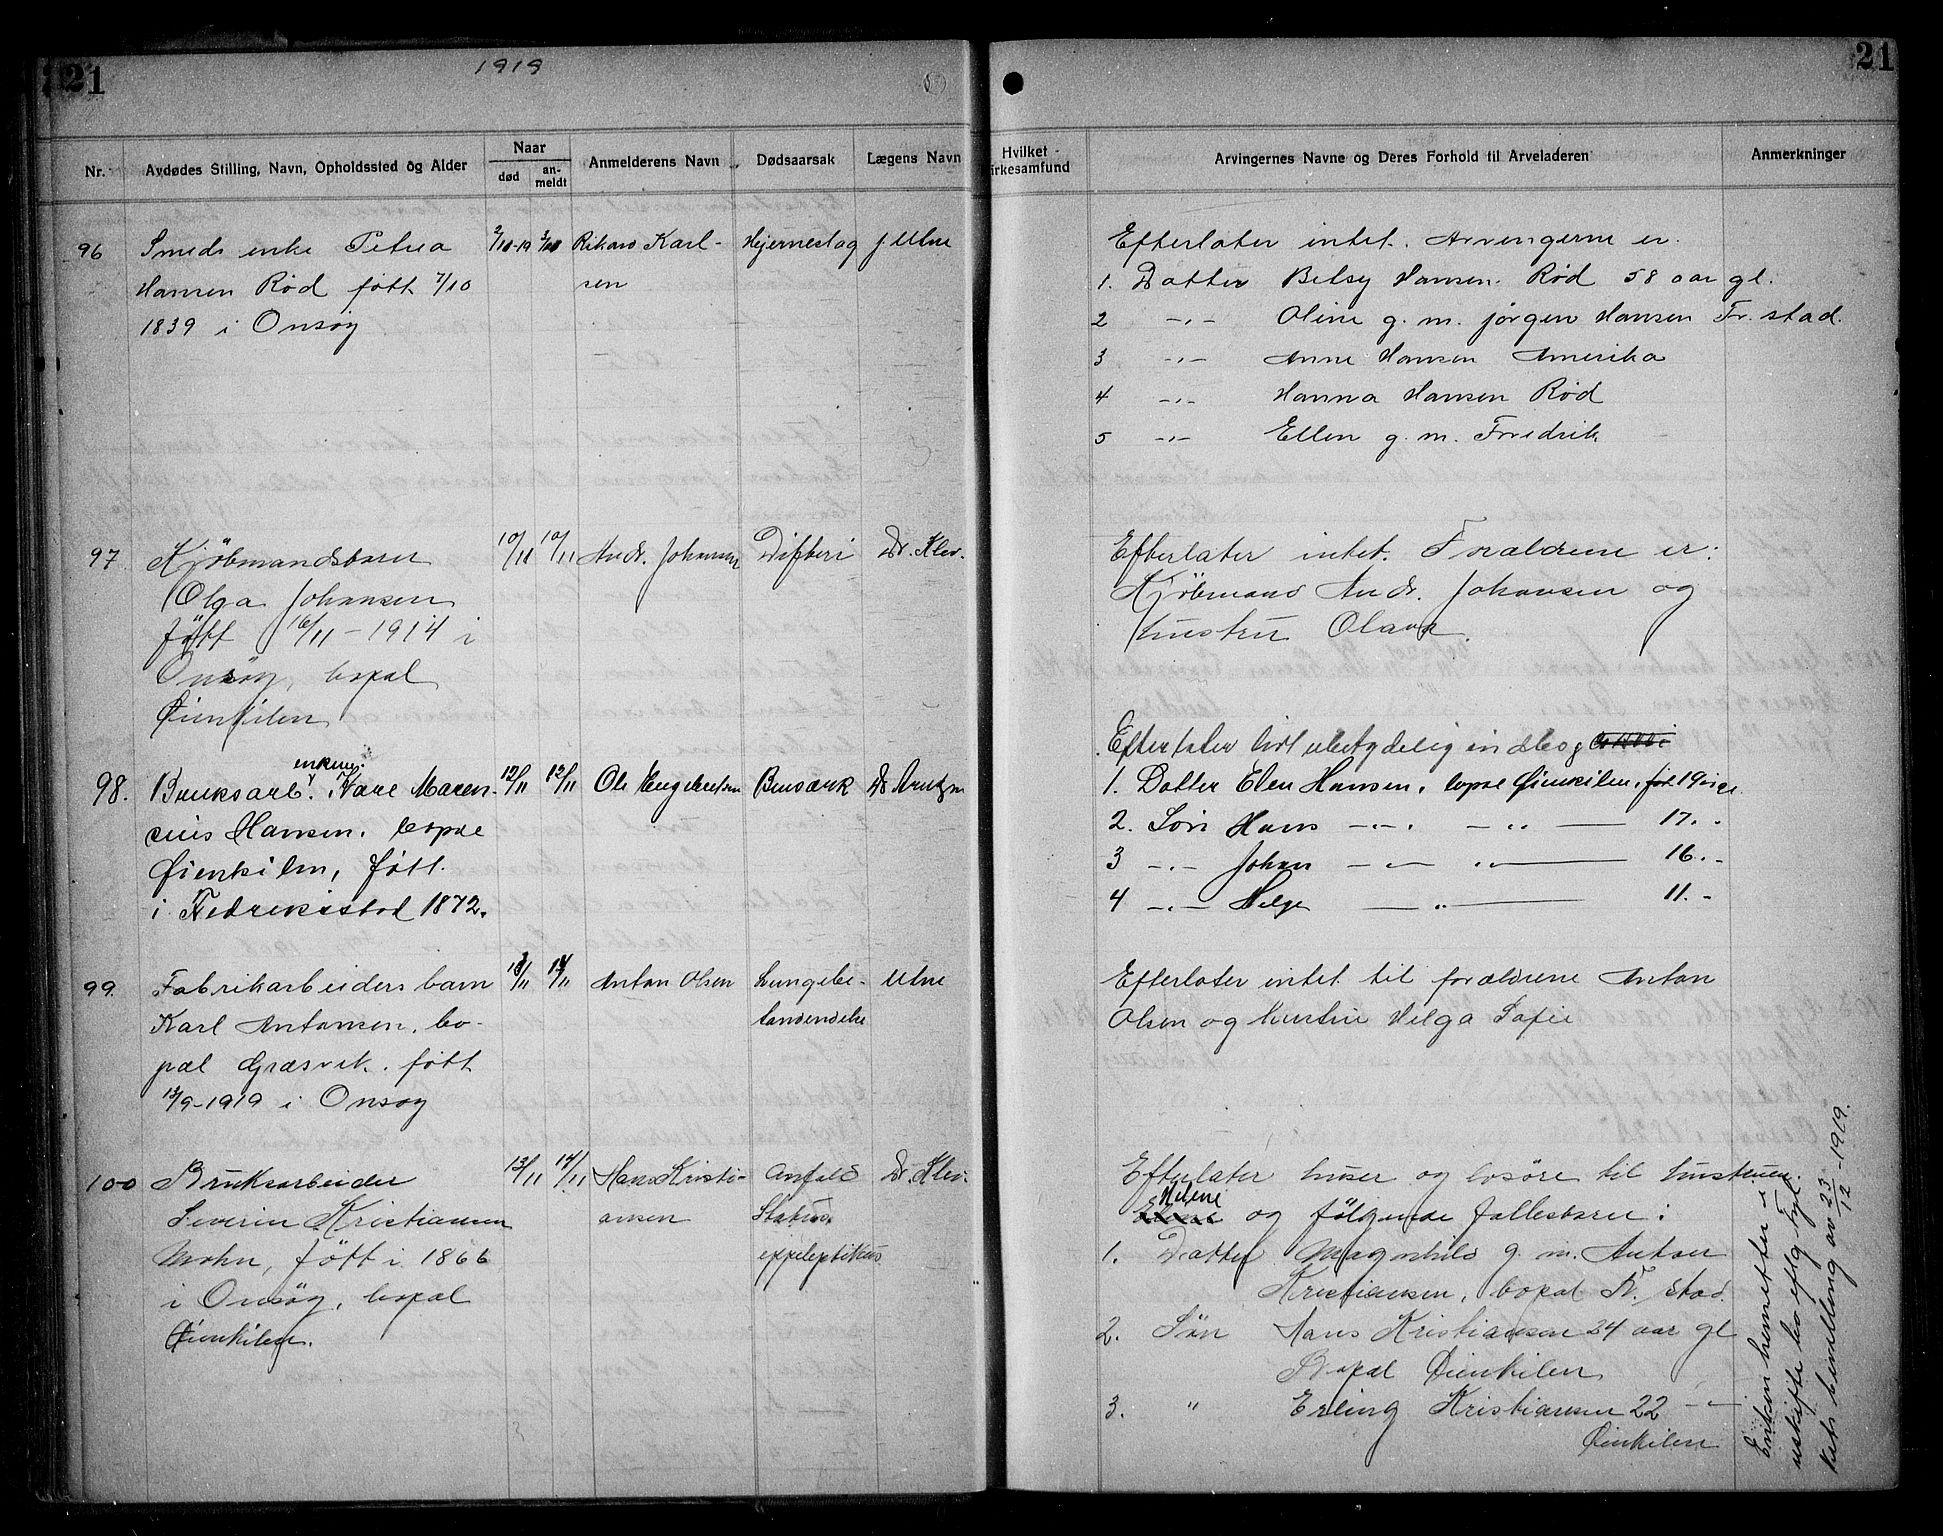 21
1919
21
Nr.
Avdødes Stilling, Navn, Opholdssted og Alder
Naar
død
an-
meldt
Anmelderens Navn
Dødsaarsak
Lægens Navn
Hvilket
irkesamfund
Arvingernes Navne og Deres Forhold til Arveladeren
Anmerkninger
96 Smeds enke Petrea 2/10-19 3/10 Rikard Karl- Hjerneslag J. Utne
Hansen Rød født 7/10 sen
1839 i Onsøy
Efterlater intet. Arvingerne er.
1. Datter Betsy Hansen. Rød 58 aar gl.
2 -"- Oline g. m. Jørgen Hansen Fr. stad.
3 -"- Anne Hansen Amerika
4 -"- Hanna Hansen Rød
5 -"- Ellen g. m. Fredrik
97. Kjöbmandsbarn 10/11 10/11 Andr. Johansen Difteri Dr. Klev.
Olga Johansen
født 16/11-1914 i
Onsöy, bopal
Øienkilen
Efterlater intet. Forældrene er:
Kjöbmand Andr. Johansen og
hustru Olava.
98. Bruksarb. enkem. Kare Maren- 12/11 12/11 Ole Engebretsen Dr Arntzen
cius Hansen. bopæl
Øienkilen, født.
i Fredrikstad 1872.
Efterlater lidt ubetydelig indbo
1. Datter Elen Hansen, bopæl Øienkilen, 19
2. Søn Hans -"- -"- 17. -
3 -"- Johan -"- -"- 16. -
4 -"- Helge -"- 11. -
99. Fabrikarbeiders barn 13/11 14/11 Anton Olsen Lungebe- Utne
Karl Antonsen, bo- tændendelse
pæl Græsvik. født
13/9-1919 i Onsøy
Efterlater intet til forældrene Anton
Olsen og hustru Helga Sofie
100 Bruksarbeider 13/11 14/11 Hans Kristi- Anfald Dr. Klev.
Severin Kristiansen ansen Status
Mohn, født i 1866 epileptikus
i Onsöy, bopal
Øienkilen.
Efterlater huser og lösöre til hustruen
Helene og følgende fallesbarn:
1. Datter Magnhild g. m. Anton
Kristiansen, bopal Fr. stad.
2. Sön Hans Kristiansen 24 aar gl
Bopal Øienkilen
3. " Erling Kristiansen 22 -"-
Øienkilen
Enken hensitter i
uskiftet bo eftg. Fyl-
kets bevilling av 23/12-1919.